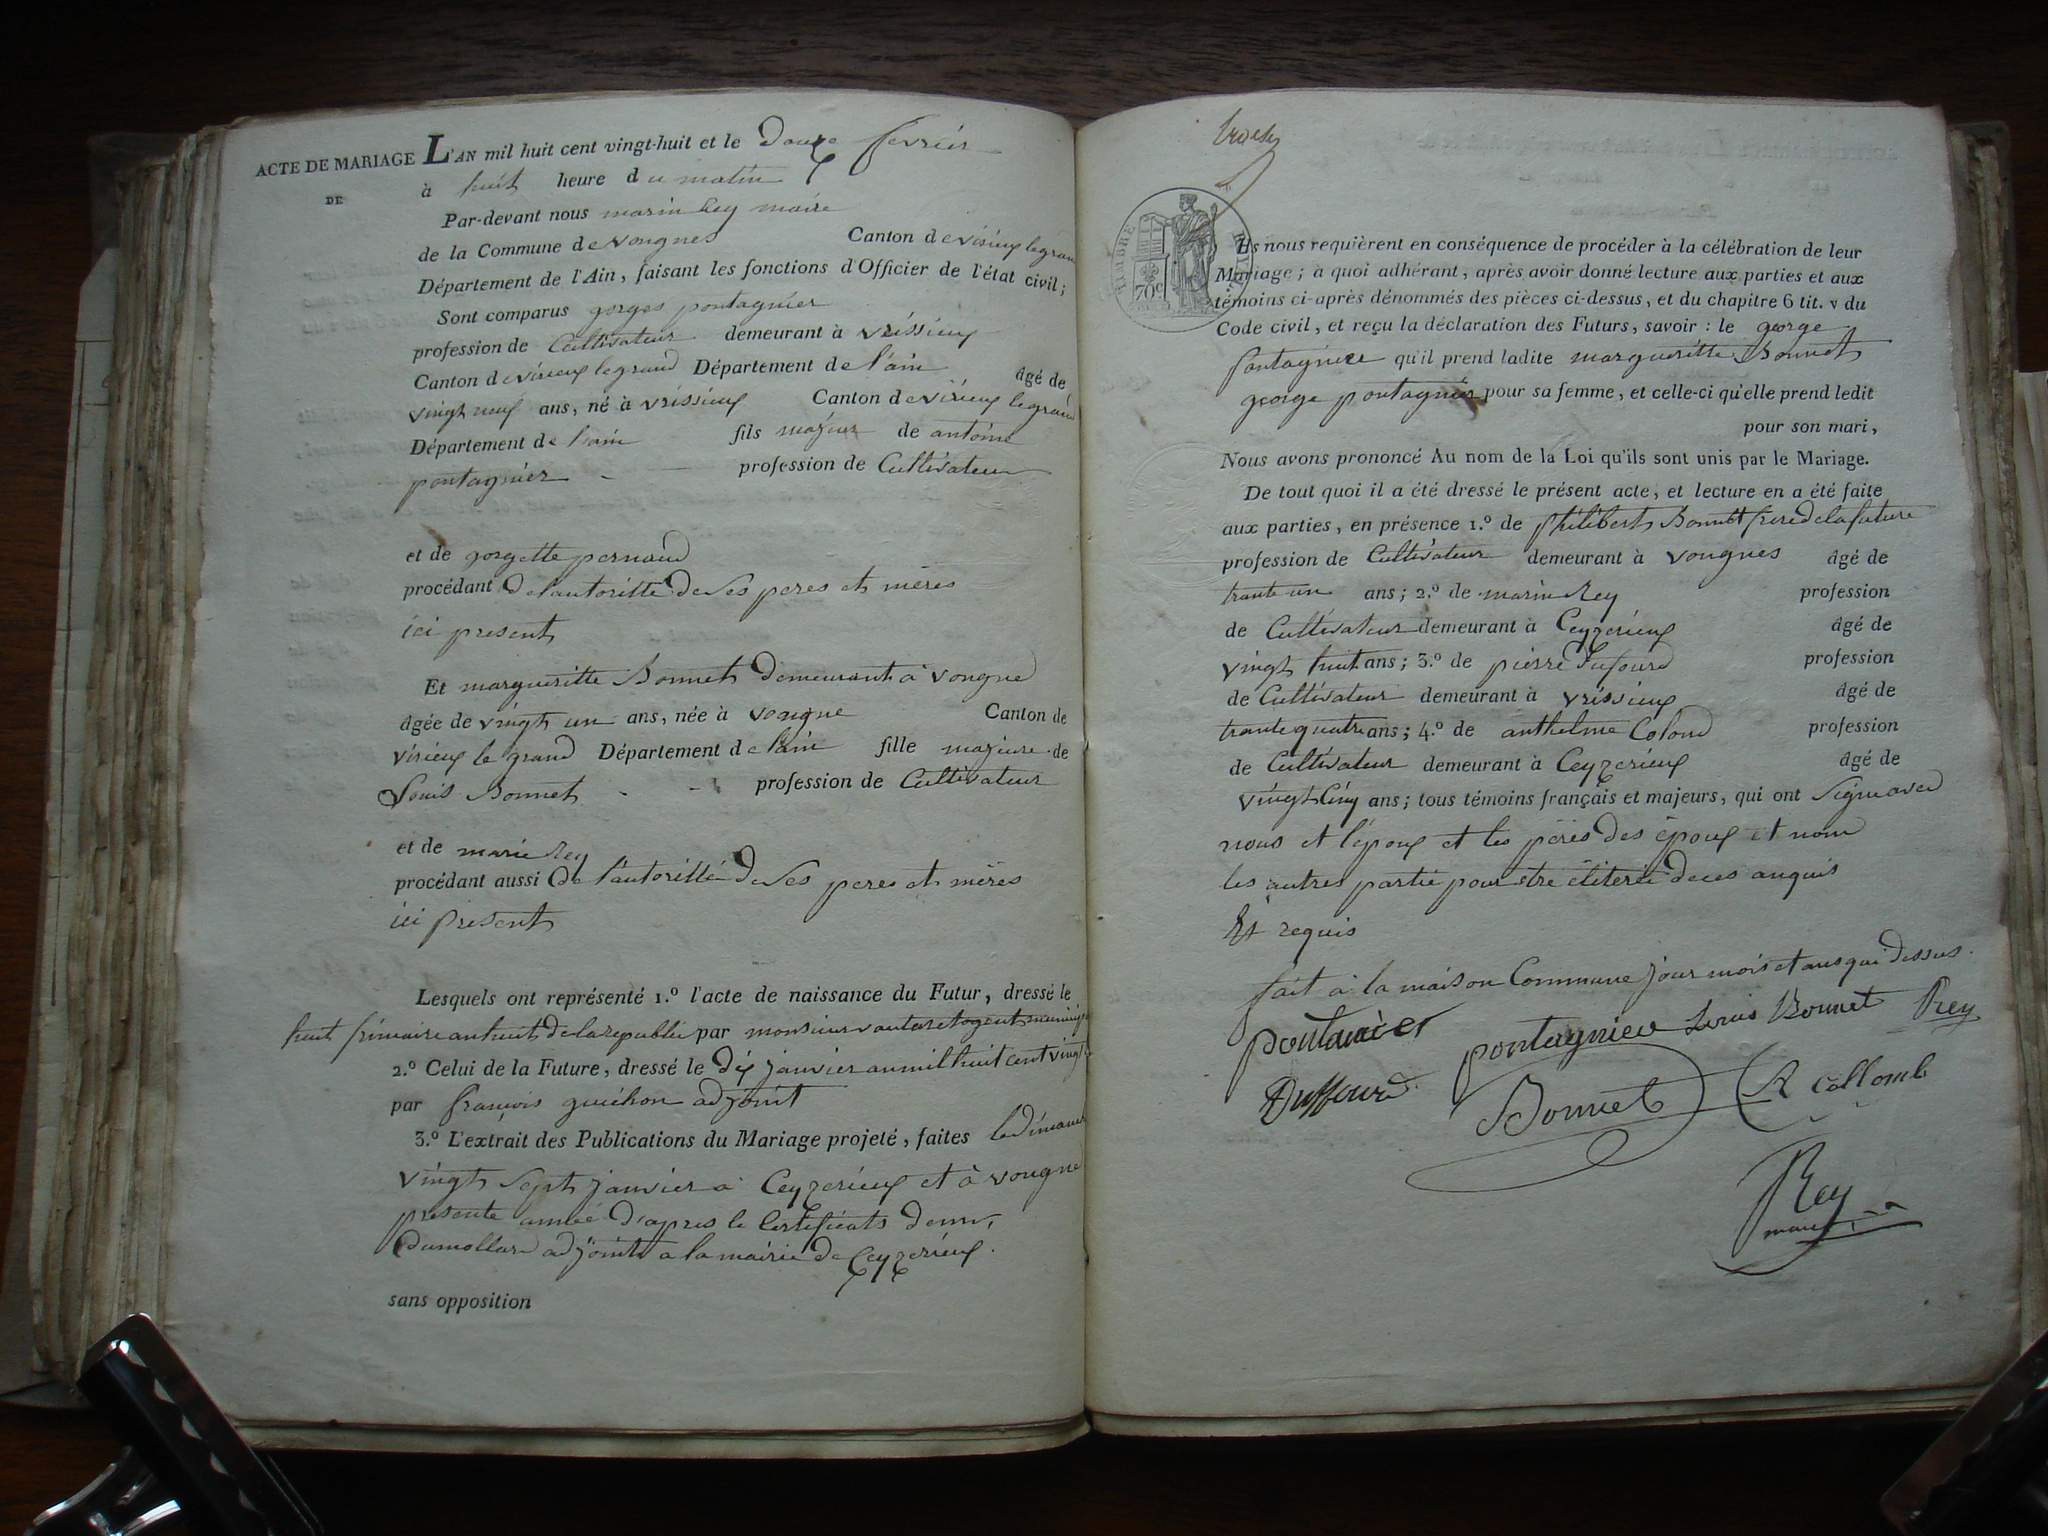 ACTE DE MARIAGE
DE
L'AN mil huit cent vingt-huit et le Douze fevrier
à huit heure du matin
Par-devant nous marin Rey maire
de la Commune de vongnes Canton de virieux le grand
Département de l'Ain, faisant les fonctions d'Officier de l'état civil;
Sont comparus gorges pontagnier
profession de Cultivateur demeurant à vrissieux
Canton de virieux le grand Département de l'ain âgé de
vingt neuf ans, né à vrissieux Canton de virieux le grand
Département de l'ain fils majeur de antoine
pontagnier profession de Cultivateur
et de gorgette pernaud
procédant de l'autoritté de ses peres et mères
ici present
Et margueritte Bonnet demeurant à vongne
âgée de vingt un ans, née à vongne Canton de
virieux le grand Département de l'ain fille majeure de
Louis Bonnet profession de Cultivateur
et de marie Rey
procédant aussi de l'autorittée de ses peres et mères
ici present
Lesquels ont représenté 1.º l'acte de naissance du Futur, dressé le
huit frimaire an huit de la republic par monsieur
2.º Celui de la Future, dressé le dix janvier an mil huit cent
par françois guichon adjoint
3.º L'extrait des Publications du Mariage projeté, faites le Dimanche
vingt sept janvier a Ceyzerieux et à vongne
presente année d'apres le Certificats de mr,
Dumollard adjoint a la mairie de Ceyzerieux.
sans opposition
TIMBRE
70c
Ils nous requièrent en conséquence de procéder à la célébration de leur
Mariage; à quoi adhérant, après avoir donné lecture aux parties et aux
témoins ci-après dénommés des pièces ci-dessus, et du chapitre 6 tit. v du
Code civil, et reçu la déclaration des Futurs, savoir: le george
pontagnier qu'il prend ladite margueritte Bonnet
george pontagnier pour sa femme, et celle-ci qu'elle prend ledit
pour son mari,
Nous avons prononcé Au nom de la Loi qu'ils sont unis par le Mariage.
De tout quoi il a été dressé le présent acte, et lecture en a été faite
aux parties, en présence 1.º de philibert Bonnet frere de la future
profession de Cultivateur demeurant à vongnes âgé de
trante un ans; 2.º de marin Rey profession
de Cultivateur demeurant à Ceyzerieux âgé de
vingt huit ans; 3.º de pierre Dufourd profession
de Cultivateur demeurant à vrissieux âgé de
trante quatre ans; 4.º de anthelme Colond profession
de Cultivateur demeurant à Ceyzerieux âgé de
vingt Cinq ans; tous témoins français et majeurs, qui ont signe avec
nous et l'epoux et les pères des époux et nom
les autres partie pour etre éliteré de ces anquis
Et requis
fait à la maison Commune jour mois et an que dessus.
pontanier pontagnier Louis Bonnet Rey
Duffourd Bonnet A Collomb
Rey
maire